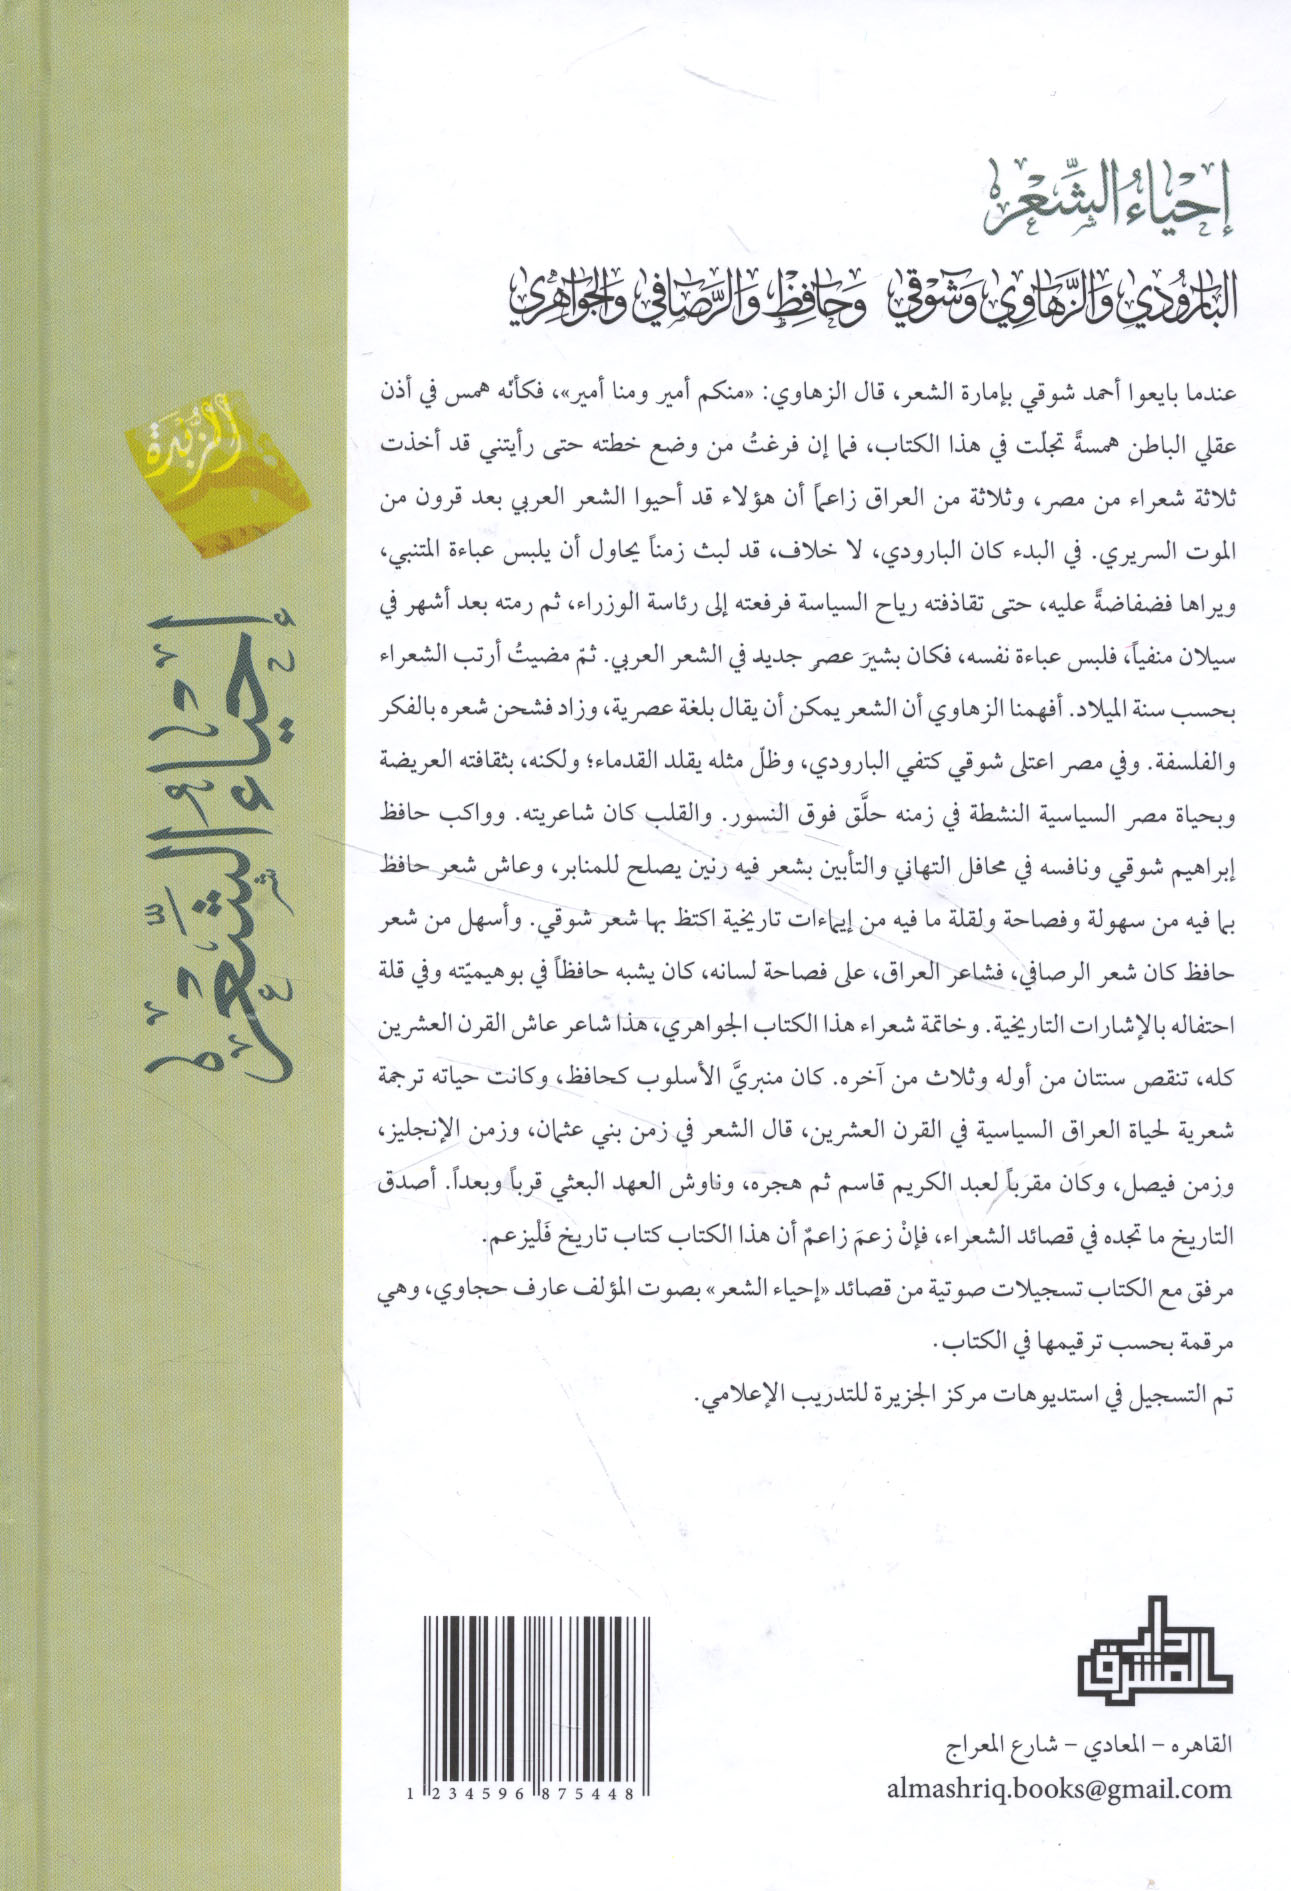 إحْياءُ الشِّعْر
البَارُودي وَالزَّهَاوِي وَشَوْقي وَحَافِظ وَالرَّصَافي وَالجَوَاهِري
عندما بايعوا أحمد شوقي بإمارة الشعر، قال الزهاوي: «منكم أمير ومنا أمير»، فكأنّه همس في أذن
عقلي الباطن همسةً تجلّت في هذا الكتاب، فما إن فرغتُ من وضع خطته حتى رأيتني قد أخذت
ثلاثة شعراء من مصر، وثلاثة من العراق زاعماً أن هؤلاء قد أحيوا الشعر العربي بعد قرون من
الموت السريري. في البدء كان البارودي، لا خلاف، قد لبث زمناً يحاول أن يلبس عباءة المتنبي،
ويراها فضفاضةً عليه، حتى تقاذفته رياح السياسة فرفعته إلى رئاسة الوزراء، ثم رمته بعد أشهر في
سيلان منفياً، فلبس عباءة نفسه، فكان بشيرَ عصر جديد في الشعر العربي. ثمّ مضيتُ أرتب الشعراء
بحسب سنة الميلاد. أفهمنا الزهاوي أن الشعر يمكن أن يقال بلغة عصرية، وزاد فشحن شعره بالفكر
والفلسفة. وفي مصر اعتلى شوقي كتفي البارودي، وظلّ مثله يقلد القدماء؛ ولكنه، بثقافته العريضة
وبحياة مصر السياسية النشطة في زمنه حلَّق فوق النسور. والقلب كان شاعريته. وواكب حافظ
إبراهيم شوقي ونافسه في محافل التهاني والتأبين بشعر فيه رنين يصلح للمنابر، وعاش شعر حافظ
بما فيه من سهولة وفصاحة ولقلة ما فيه من إيماءات تاريخية اكتظ بها شعر شوقي. وأسهل من شعر
حافظ كان شعر الرصافي، فشاعر العراق، على فصاحة لسانه، كان يشبه حافظاً في بوهيميّته وفي قلة
احتفاله بالإشارات التاريخية. وخاتمة شعراء هذا الكتاب الجواهري، هذا شاعر عاش القرن العشرين
كله، تنقص سنتان من أوله وثلاث من آخره. كان منبريَّ الأسلوب كحافظ، وكانت حياته ترجمة
شعرية لحياة العراق السياسية في القرن العشرين، قال الشعر في زمن بني عثمان، وزمن الإنجليز،
وزمن فيصل، وكان مقرباً لعبد الكريم قاسم ثم هجره، وناوش العهد البعثي قرباً وبعداً. أصدق
التاريخ ما تجده في قصائد الشعراء، فإنْ زعمَ زاعمٌ أن هذا الكتاب كتاب تاريخ فَلْيزعم.
مرفق مع الكتاب تسجيلات صوتية من قصائد «إحياء الشعر» بصوت المؤلف عارف حجاوي، وهي
مرقمة بحسب ترقيمها في الكتاب.
تم التسجيل في استديوهات مركز الجزيرة للتدريب الإعلامي.
دار المشرق
القاهره - المعادي - شارع المعراج
almashriq.books@gmail.com
1 234596 875448
الزُّبْدَة
إحياء الشِّعْر